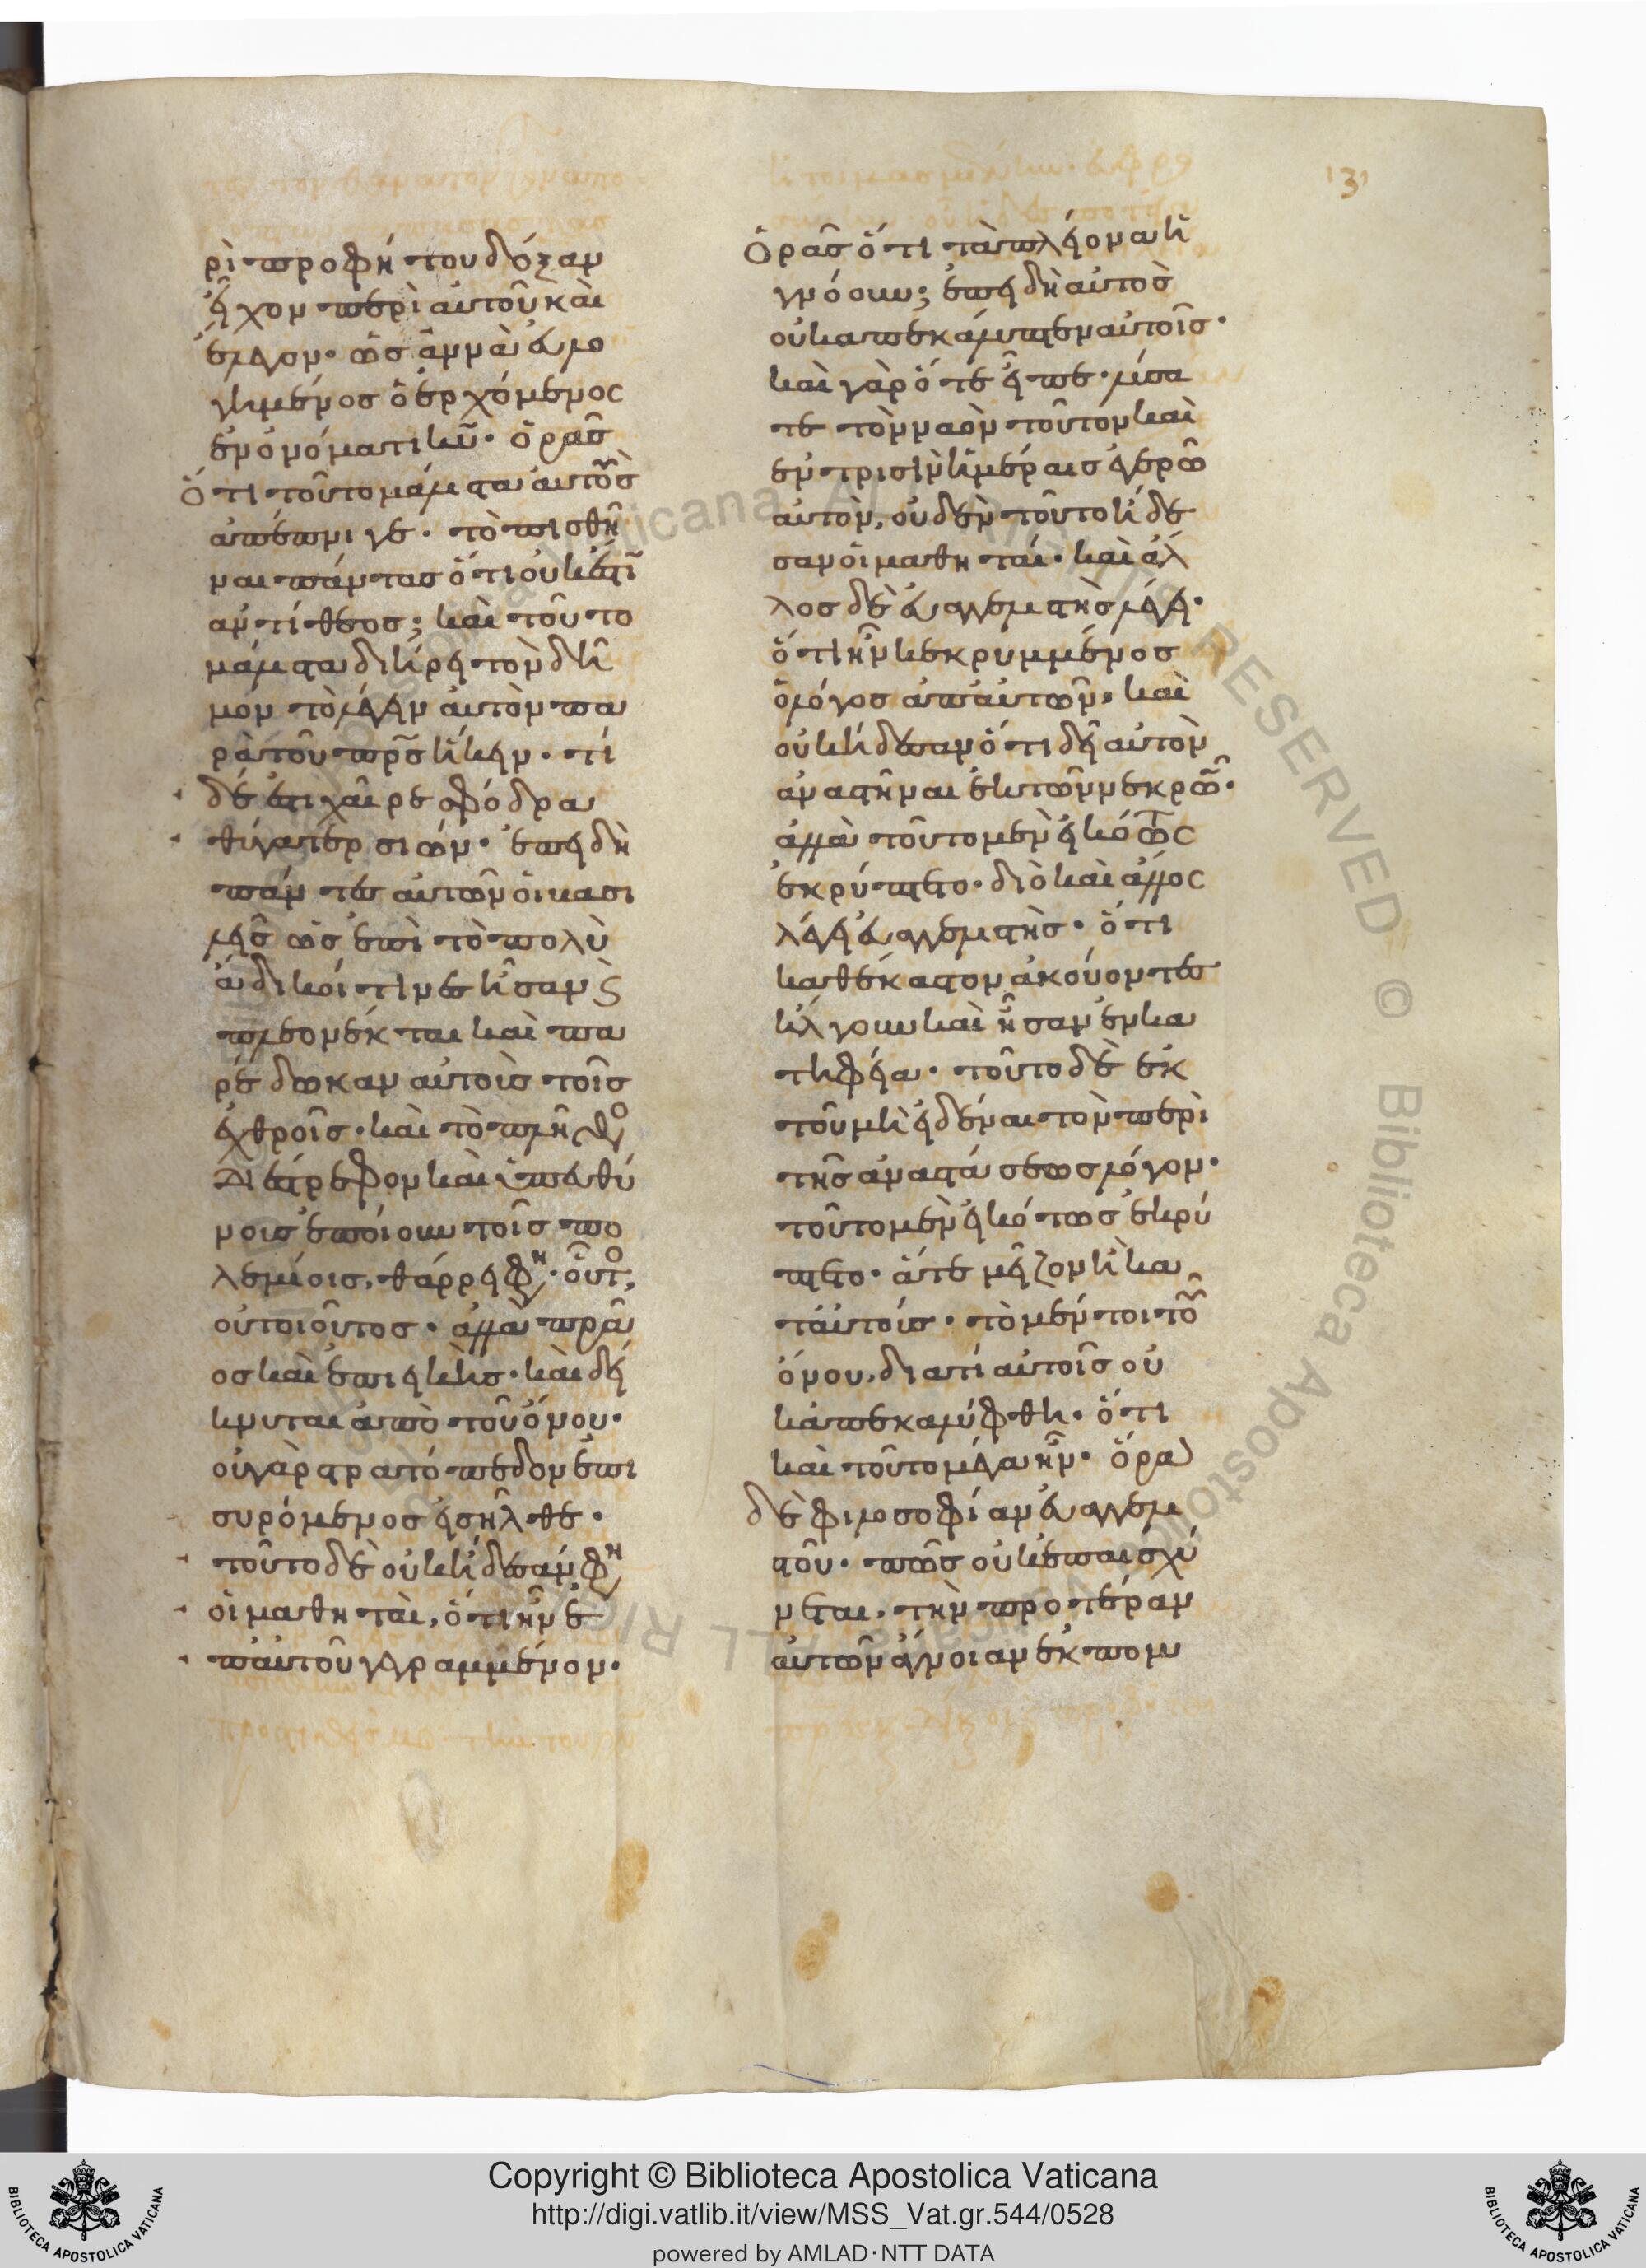 131
ρὶ προφήτου δόξαν
εἶχον περὶ αὐτοῦ καὶ
ἔλεγον· ὡς ἀλλὰ εὐλο
γημένος ὁ ἐρχόμενος
ἐν ὀνόματι κυ̅· ὁρᾶς
ὅτι τοῦτο μάλιστα αὐτοὺς
ἀπέπνιγε· τὸ πεισθῆ
ναι πάντας ὅτι οὐκ ἔστι̅
ἀντίθεος; καὶ τοῦτο
μάλιστα διήρει τὸν δῆ
μον τὸ λέγειν αὐτὸν πα
ρὰ τοῦ πρς̅ ἥκειν· τί
δέ ἐστι χαῖρε σφόδρα
θύγατερ σιών· ἐπειδὴ
πάντες αὐτῶν οἱ βασι
λεῖς ὡς ἐπὶ τὸ πολὺ
ἄδικοί τινες ἦσαν ϛ̀
πλεονέκται καὶ πα
ρέδωκαν αὐτοὺς τοῖς
ἐχθροῖς· καὶ τὸ πλῆθο
διέστρεφον καὶ ὑπευθύ
νους ἐποίουν τοῖς πο
λεμίοις, θάρρει φη· οὗτο
οὐ τοιοῦτος· ἀλλὰ πρᾶ
ος καὶ ἐπιεικὴς· καὶ δεί
κνυται ἀπὸ τοῦ ὄνου·
οὐ γὰρ στρατόπεδον ἐπι
συρόμενος εἰσῆλθε·
τοῦτο δὲ οὐκ ἤδεσαν φη
οἱ μαθηταὶ, ὅτι ἦν ἐ
π' αὐτοῦ γεγραμμένον·
Ὁρᾶς ὅτι τὰ πλείονα ἠ
γνόουν; ἐπειδὴ αὐτὸς
οὐκ ἀπεκάλυπτεν αὐτοῖς·
καὶ γὰρ ὅτε εἶπε· λύσα
τε τὸν ναὸν τοῦτον καὶ
ἐν τρισὶν ἡμέραις ἐγερῶ
αὐτὸν, οὐδὲν τοῦτο ἤδε
σαν οἱ μαθηταί· καὶ ἄλ
λος δὲ εὐαγγελιστὴς λέγει·
ὅτι ἦν κεκρυμμένος
ὁ λόγος ἀπ' αὐτῶν· καὶ
οὐκ ἤδεσαν ὅτι δεῖ αὐτὸν
ἀναστῆναι ἐκ τῶν νεκρῶ·
ἀλλὰ τοῦτο μὲν εἰκότως
ἐκρύπτετο· διὸ καὶ ἄλλος
λέγει εὐαγγελιστὴς· ὅτι
καθ' ἕκαστον ἀκούοντες
ἤλγουν καὶ ἦσαν ἐν κα
τηφείᾳ· τοῦτο δὲ ἐκ
τοῦ μὴ εἰδέναι τὸν περὶ
τῆς ἀναστάσεως λόγον·
τοῦτο μὲν εἰκότως ἐκρύ
πτετο· ἅτε μεῖζον ἢ κα
τ' αὐτούς· τὸ μέντοι τοῦ
ὄνου, διατί αὐτοῖς οὐ
κ ἀπεκαλύφθη· ὅτι
καὶ τοῦτο μέγα ἦν· ὅρα
δὲ φιλοσοφίαν εὐαγγελι
στοῦ· πῶς οὐκ ἐπαισχύ
νεται, τὴν προτέραν
αὐτῶν ἄγνοιαν ἐκπομ
Copyright © Biblioteca Apostolica Vaticana
http://digi.vatlib.it/view/MSS_Vat.gr.544/0528
powered by AMLAD·NTT DATA
BIBLIOTECA APOSTOLICA VATICANA
BIBLIOTECA APOSTOLICA VATICANA